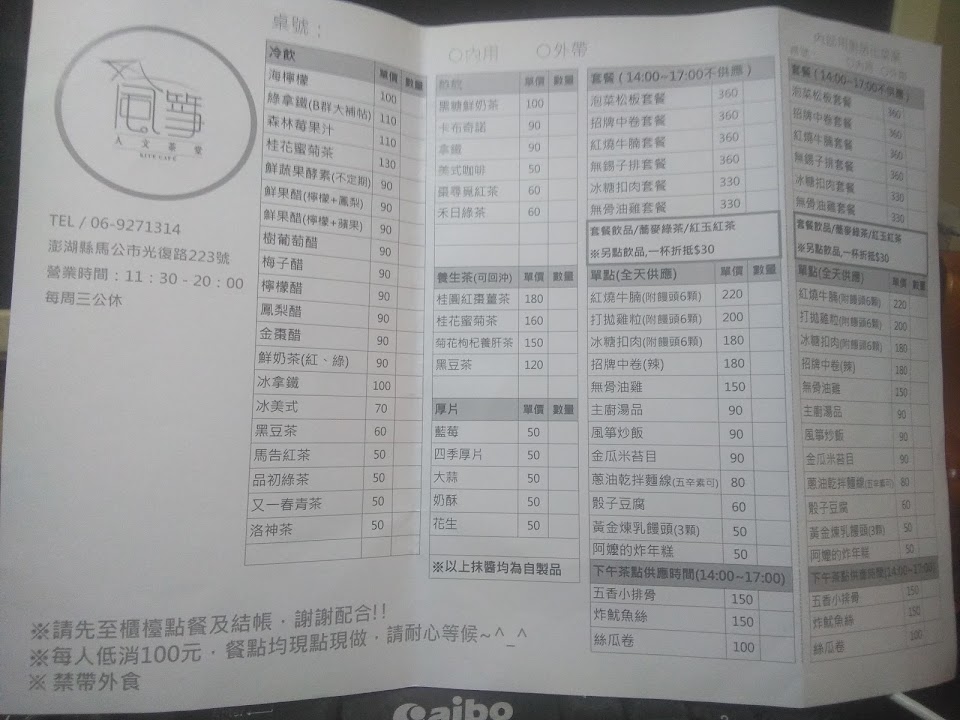 風箏
人文茶堂
KITE CAFE
TEL / 06-9271314
澎湖縣馬公市光復路223號
營業時間：11：30 - 20：00
每周三公休
桌號：
〇內用 〇外帶
冷飲 單價 數量
海檸檬 100
綠拿鐵(B群大補帖) 110
森林莓果汁 110
桂花蜜菊茶 130
鮮蔬果酵素(不定期) 90
鮮果醋(檸檬+鳳梨) 90
鮮果醋(檸檬+蘋果) 90
樹葡萄醋 90
梅子醋 90
檸檬醋 90
鳳梨醋 90
金棗醋 90
鮮奶茶(紅、綠) 90
冰拿鐵 100
冰美式 70
黑豆茶 60
馬告紅茶 50
品初綠茶 50
又一春青茶 50
洛神茶 50
熱飲 單價 數量
黑糖鮮奶茶 100
卡布奇諾 90
拿鐵 90
美式咖啡 50
棗尋覓紅茶 60
禾日綠茶 60
養生茶(可回沖) 單價 數量
桂圓紅棗薑茶 180
桂花蜜菊茶 160
菊花枸杞養肝茶 150
黑豆茶 120
厚片 單價 數量
藍莓 50
四季厚片 50
大蒜 50
奶酥 50
花生 50
※以上抹醬均為自製品
套餐 ( 14:00~17:00不供應 )
泡菜松板套餐 360
招牌中卷套餐 360
紅燒牛腩套餐 360
無錫子排套餐 360
冰糖扣肉套餐 330
無骨油雞套餐 330
套餐飲品/蕎麥綠茶/紅玉紅茶
※另點飲品,一杯折抵$30
單點(全天供應) 單價 數量
紅燒牛腩(附饅頭6顆) 220
打拋雞粒(附饅頭6顆) 200
冰糖扣肉(附饅頭6顆) 180
招牌中卷(辣) 180
無骨油雞 150
主廚湯品 90
風箏炒飯 90
金瓜米苔目 90
蔥油乾拌麵線(五辛素可) 80
骰子豆腐 60
黃金煉乳饅頭(3顆) 50
阿嬤的炸年糕 50
下午茶點供應時間(14:00~17:00)
五香小排骨 150
炸魷魚絲 150
絲瓜卷 100
桌號
〇內用 〇外帶
套餐 ( 14:00~17:00不供應 )
泡菜松板套餐 360
招牌中卷套餐 360
紅燒牛腩套餐 360
無錫子排套餐 360
冰糖扣肉套餐 330
無骨油雞套餐 330
套餐飲品/蕎麥綠茶/紅玉紅茶
※另點飲品,一杯折抵$30
單點(全天供應) 單價 數量
紅燒牛腩(附饅頭6顆) 220
打拋雞粒(附饅頭6顆) 200
冰糖扣肉(附饅頭6顆) 180
招牌中卷(辣) 180
無骨油雞 150
主廚湯品 90
風箏炒飯 90
金瓜米苔目 90
蔥油乾拌麵線(五辛素可) 80
骰子豆腐 60
黃金煉乳饅頭(3顆) 50
阿嬤的炸年糕 50
下午茶點供應時間(14:00~17:00)
五香小排骨 150
炸魷魚絲 150
絲瓜卷 100
※請先至櫃檯點餐及結帳，謝謝配合!!
※每人低消100元，餐點均現點現做，請耐心等候~^_^
※ 禁帶外食
aibo